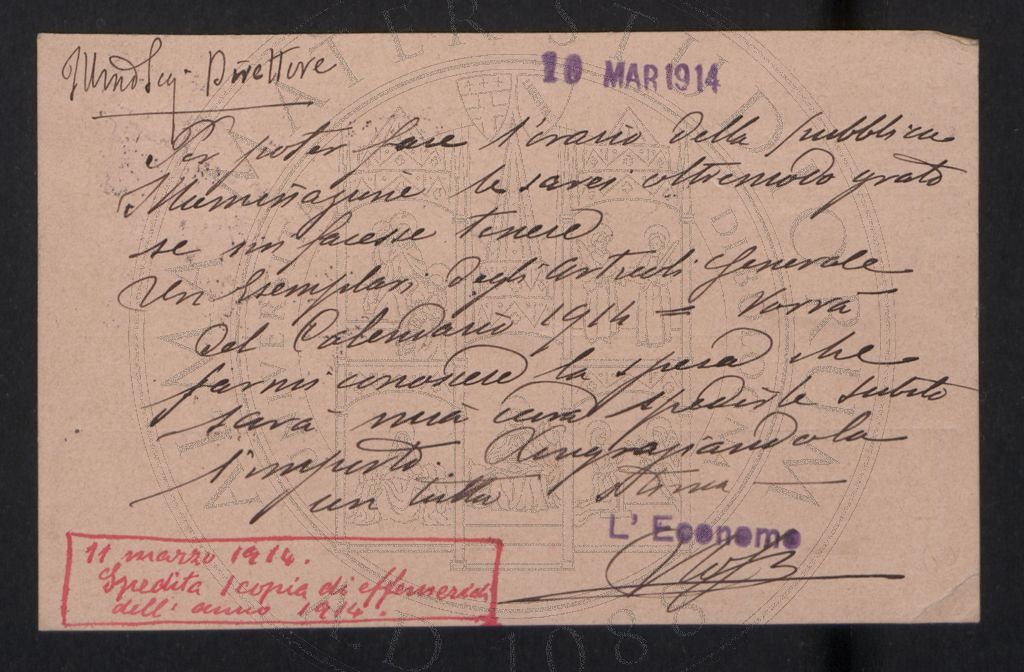 Illmo Sig. Direttore
10 MAR 1914
Per poter fare l'orario della pubblica
illuminazione le sarei oltremodo grato
se mi facesse tenere
un esemplare degli Generale
del Calendario 1914 = Vorrà
farmi conoscere la spesa che
sarà mia cura spedirle subito
l'importo. Ringraziandola
con tutta stima
L'Economo
11 marzo 1914.
Spedita 1 copia di effemeridi
dell'anno 1914.